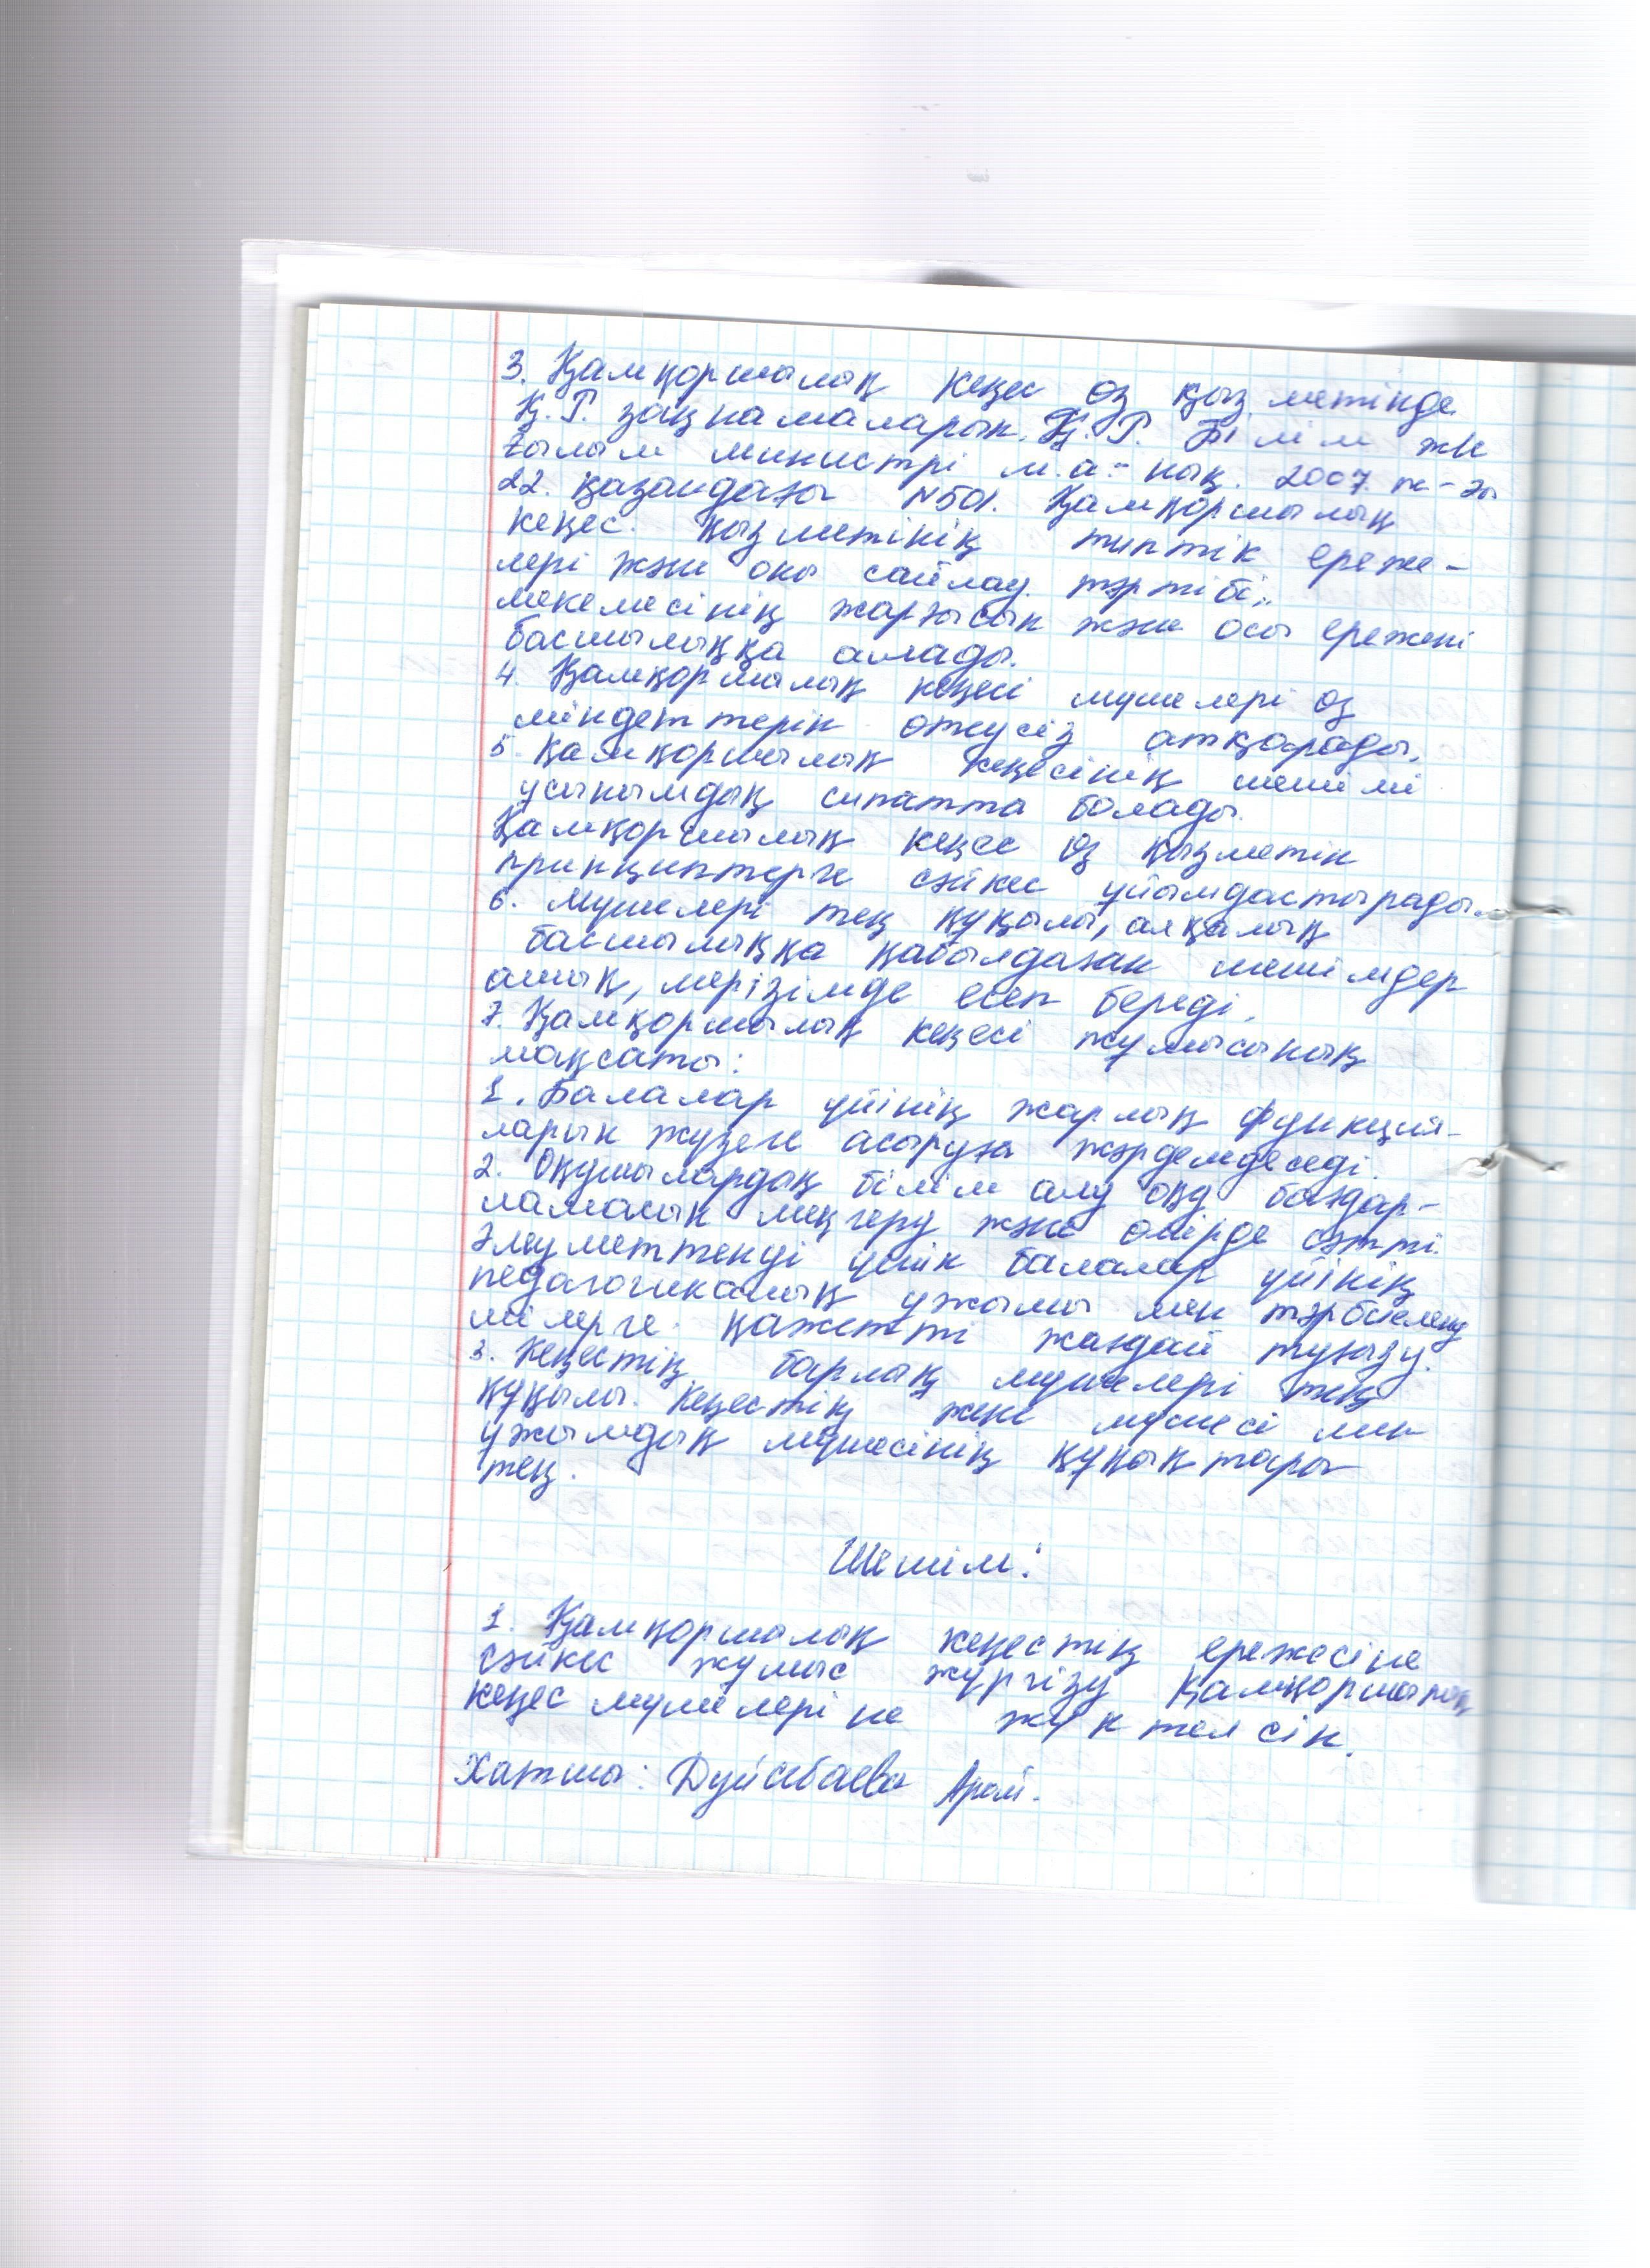 3. Қамқоршылық кеңес өз қызметінде
Қ.Р. заңнамаларын, Қ.Р. Білім және
ғылым министрі м.а.-ның. 2007 ж-ғы
22. қазандағы №501. Қамқоршылық
кеңес. қызметінің типтік ереже-
лері және оны сайлау тәртібі"
мекемесінің жарғысын және осы ережені
басшылыққа алады.
4. Қамқоршылық кеңесі мүшелері өз
міндеттерін өтеусіз атқарады.
5. Қамқоршылық кеңесінің шешімі
ұсынымдық сипатта болады.
Қамқоршылық кеңес өз қызметін
принциптерге сәйкес ұйымдастырады.
6. Мүшелері тең құқылы, алқалық
басшылыққа қабылдаған шешімдер
ашық, мерізімде есеп береді.
7. Қамқоршылық кеңесі жұмысының
мақсаты:
1. Балалар үйінің жарлық функция-
ларын жүзеге асыруға жәрдемдеседі.
2. Оқушылардың білім алу оқу бағдар-
ламасын меңгеру және өмірде сәтті
әлеуметтенді үшін балалар үйінің
педагогикалық ұжымы мен тәрбиелену
шілерге қажетті жағдай туғызу.
3. Кеңестің барлық мүшелері тең
құқылы. Кеңестің жеке мүшесі мен
ұжымдық мүшесінің құқықтары
тең.
Шешім:
1. Қамқоршылық кеңестің ережесіне
сәйкес жұмыс жүргізу Қамқоршылық
кеңес мүшелеріне жүктелсін.
Хатшы: Дүйсебаева Арай.